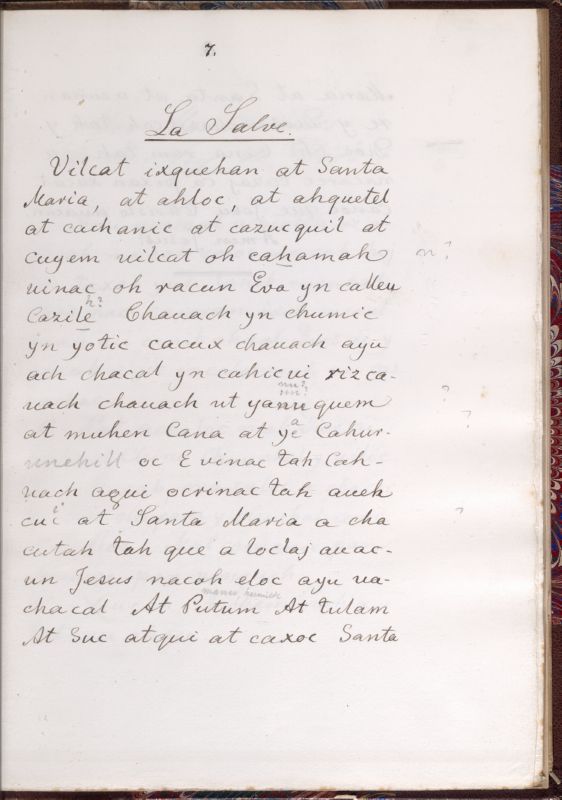 7.
La Salve.
Vilcat ixquehan at Santa
Maria, at ahloc, at ahquetel
at cachanic at cazucquil at
cuyem vilcat oh cahamah n?
uinac oh racun Eva yn calleu
h?
Cazile Chauach yn chumic
yn yotic cacux chauach ayu
ach chacal yn cahicui rizca-
nu?
uach chauach ut yanuquem ?
at muhen Cana at ye Cahur- ?
a
oc E vinac tah Cah-
uach aqui ocrinac tah auek
cui at Santa Maria a cha ?
cutah tah que a loclaj auac-
un Jesus nacoh eloc ayu ua-
chacal At Putum At tulam
At Suc atqui at caxoc Santa